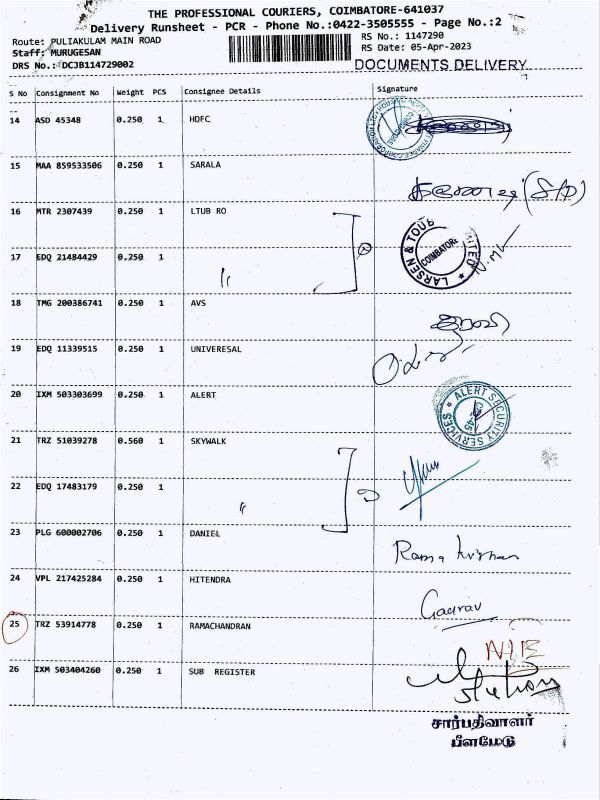 THE PROFESSIONAL COURIERS, COIMBATORE-641037
Delivery Runsheet - PCR - Phone No.:0422-3505555 - Page No.:2
Route: PULIAKULAM MAIN ROAD
RS No.: 1147290
Staff: MURUGESAN
RS Date: 05-Apr-2023
DRS No.: DCJB114729002
DOCUMENTS DELIVERY
S No Consignment No Weight PCS Consignee Details Signature
14 ASD 45348 0.250 1 HDFC
15 MAA 859533506 0.250 1 SARALA
16 MTR 2307439 0.250 1 LTUB RO
LARSEN & TOUB
COIMBATORE
17 EDQ 21484429 0.250 1 "
18 TMG 200386741 0.250 1 AVS
19 EDQ 11339515 0.250 1 UNIVERESAL
20 IXM 503303699 0.250 1 ALERT
ALERT SECURITY SERVICES
CBE-45
21 TRZ 51039278 0.560 1 SKYWALK
22 EDQ 17483179 0.250 1 "
23 PLG 600002706 0.250 1 DANIEL
Rama krishnan
24 VPL 217425284 0.250 1 HITENDRA
Gaurav
25 TRZ 53914778 0.250 1 RAMACHANDRAN
26 IXM 503404260 0.250 1 SUB REGISTER
சார்பதிவாளர்
பீளமேடு